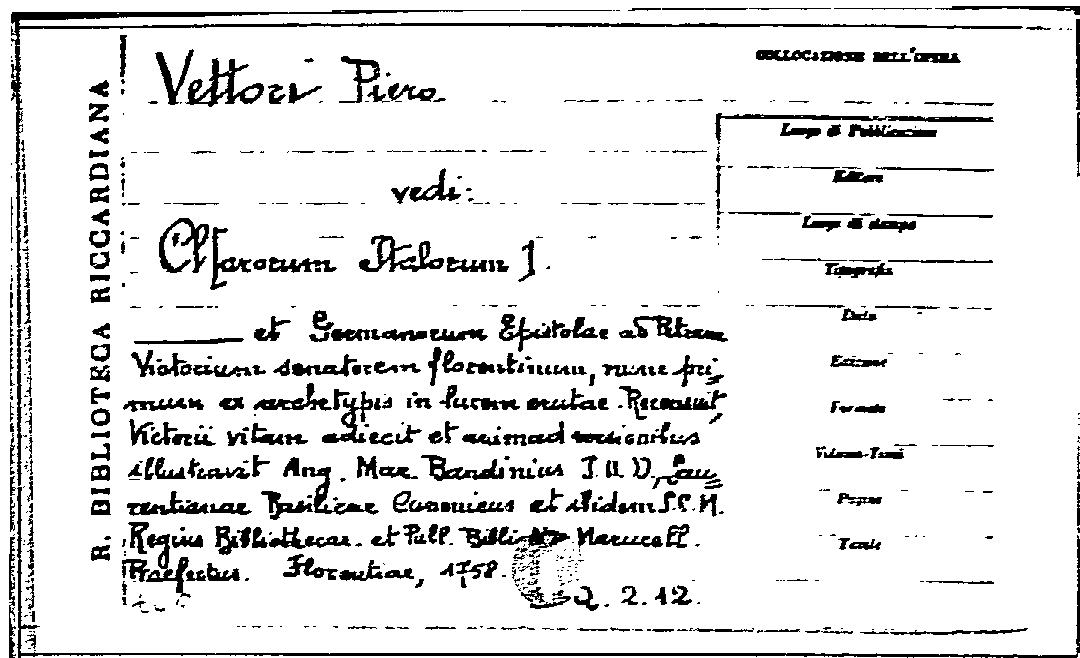 R. BIBLIOTECA RICCARDIANA
Vettori Piero
vedi:
Cl[arorum Italorum].
et Germanorum Epistolae ad Petrum
Victorium senatorem florentinum, nunc pri=
mum ex archetypis in lucem erutae. Recensuit,
Victorii vitam adiecit et animadversionibus
illustravit Ang. Mar. Bandinius I.U.D. Lau=
rentianae Basilicae Canonicus et itidem S.C.M.
Regius Bibliothecar. et Publ. Biblioth. Marucell.
Praefectus. Florentiae, 1758.
Q. 2.12.
COLLOCAZIONE DELL'OPERA
Luogo di Pubblicazione
Editore
Luogo di stampa
Tipografia
Data
Edizione
Formato
Volume-Tomi
Pagine
Tavole